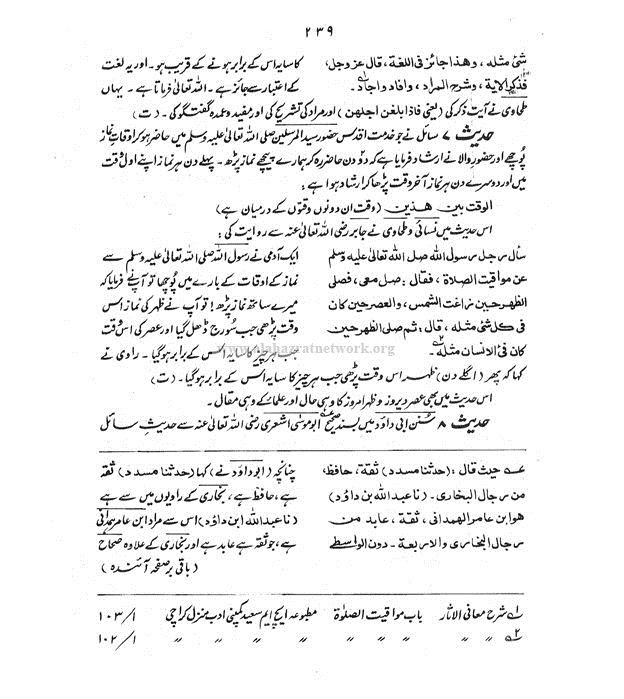 ۲۳۹
شئ مثلہ ، وھذا جائز فی اللغۃ ، قال عزوجل،
فذکر الاٰیۃ ، وشرح المراد ، وافاد واجاد ۔
کا سایہ اس کے برابر ہونے کے قریب ہو ۔ اور یہ لغت
کے اعتبار سے جائز ہے ۔ اللہ تعالیٰ فرماتا ہے ۔ یہاں
طحاوی نے آیت ذکر کی (یعنی فاذا بلغن اجلھن) اور مراد کی تشریح کی اور مفید و عمدہ گفتگو کی ۔ (ت)
حدیث ۷ سائل نے جو خدمت اقدس حضور سید المرسلین صلی اللہ تعالیٰ علیہ وسلم میں حاضر ہو کر اوقاتِ نماز
پُوچھے اور حضور والا نے ارشاد فرمایا ہے کہ دو دن حاضر رہ کر ہمارے پیچھے نماز پڑھ ۔ پہلے دن ہر نماز اپنے اول وقت
میں اور دوسرے دن ہر نماز آخر وقت پڑھا کر ارشاد ہوا ہے :
الوقت بین ھذین (وقت ان دونوں وقتوں کے درمیان ہے)
اس حدیث میں نسائی و طحاوی نے جابر رضی اللہ تعالیٰ عنہ سے روایت کی :
سأل رجل رسول اللہ صلی اللہ تعالیٰ علیہ وسلم
عن مواقیت الصلاۃ ، فقال : صل معی ، فصلی
الظھر حین زاغت الشمس ، والعصر حین کان
فی کل شئ مثلہ ، قال ، ثم صلی الظھر حین
کان فئ الانسان مثلہ ۔
ایک آدمی نے رسول اللہ صلی اللہ تعالیٰ علیہ وسلم سے
نماز کے اوقات کے بارے میں پُوچھا تو آپ نے فرمایا کہ
میرے ساتھ نماز پڑھ ! تو آپ نے ظہر کی نماز اس
وقت پڑھی جب سُورج ڈھل گیا اور عصر کی اس وقت
جب ہر چیز کا سایہ اس کے برابر ہو گیا ۔ راوی نے
کہا کہ پھر (اگلے دن) ظہر اس وقت پڑھی جب ہر چیز کا سایہ اس کے برابر ہو گیا ۔ (ت)
اس حدیث میں بھی عصر دیروز و ظہر امروز کا وہی حال اور علما کے وہی مقال ۔
حدیث ۸ سُنن ابی داؤد میں بسند صحیح عـہ ابو موسٰی اشعری رضی اللہ تعالیٰ عنہ سے حدیثِ سائل
عـہ حیث قال : (حدثنا مسدد) ثقۃ ، حافظ ،
من رجال البخاری ۔ (نا عبد اللہ بن داؤد)
ھو ابن عامر الھمدانی ، ثقۃ ، عابد من
رجال البخاری والاربعۃ ۔ دون الواسطی
چنانچہ (ابوداؤد نے) کہا (حدثنا مسدد) ثقہ
ہے ، حافظ ہے ، بخاری کے راویوں میں سے ہے
(نا عبد اللہ ابن داؤد) اس سے مراد ابن عامر ہمدانی
ہے ، جو ثقہ ہے عابد ہے اور بخاری کے علاوہ صحاح
(باقی بر صفحہ آئندہ)
۱؎ شرح معانی الآثار باب مواقیت الصلوٰۃ مطبوعہ ایچ ایم سعید کمپنی ادب منزل کراچی ۱/۱۰۳
۲؎ ״ ״ ״ ״ ״ ״ ״ ״ ״ ۱/۱۰۲